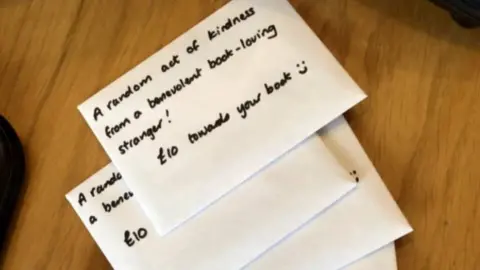 A random act of kindness
from a benevolent book-loving
stranger!
£10 towards your book :)
A rando
a benev
£10
:)